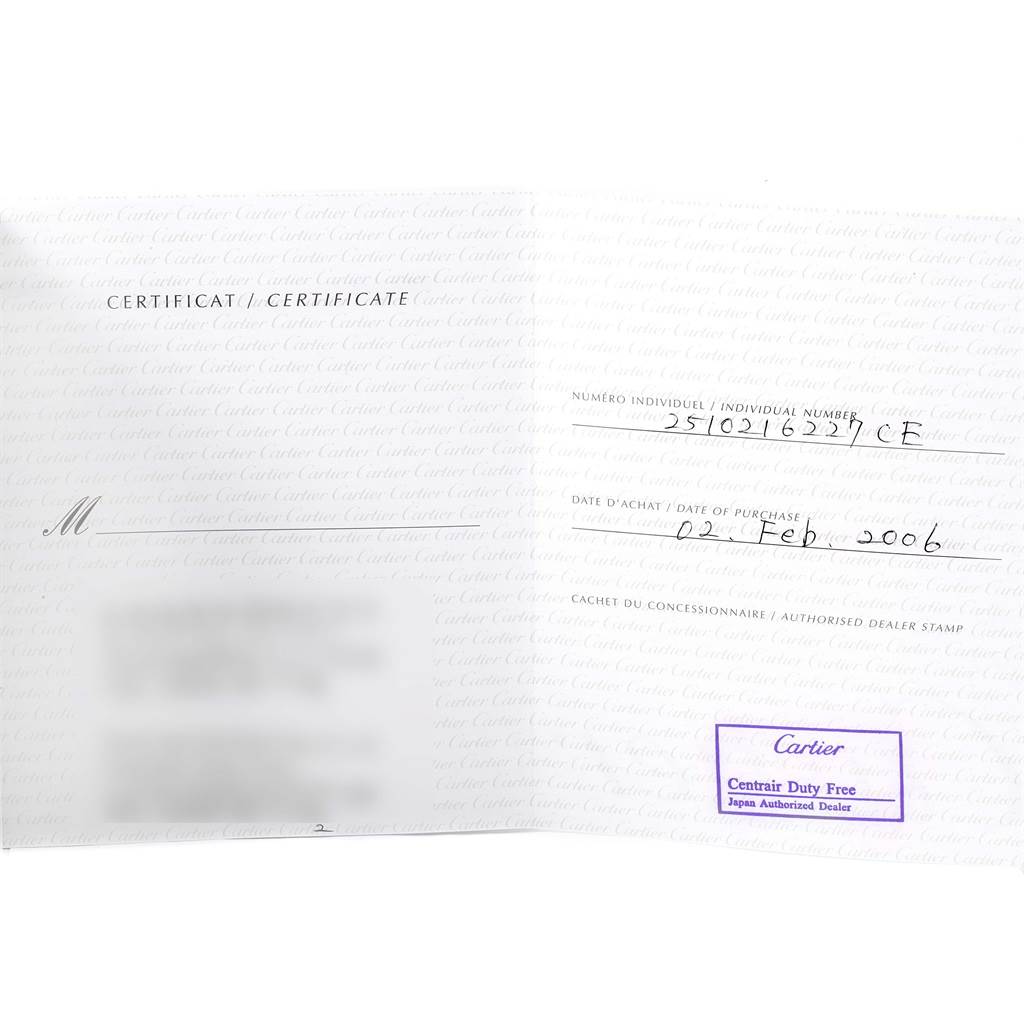 CERTIFICAT / CERTIFICATE
M
2
NUMÉRO INDIVIDUEL / INDIVIDUAL NUMBER
2510216227 CE
DATE D'ACHAT / DATE OF PURCHASE
02. Feb. 2006
CACHET DU CONCESSIONNAIRE / AUTHORISED DEALER STAMP
Cartier
Centrair Duty Free
Japan Authorized Dealer